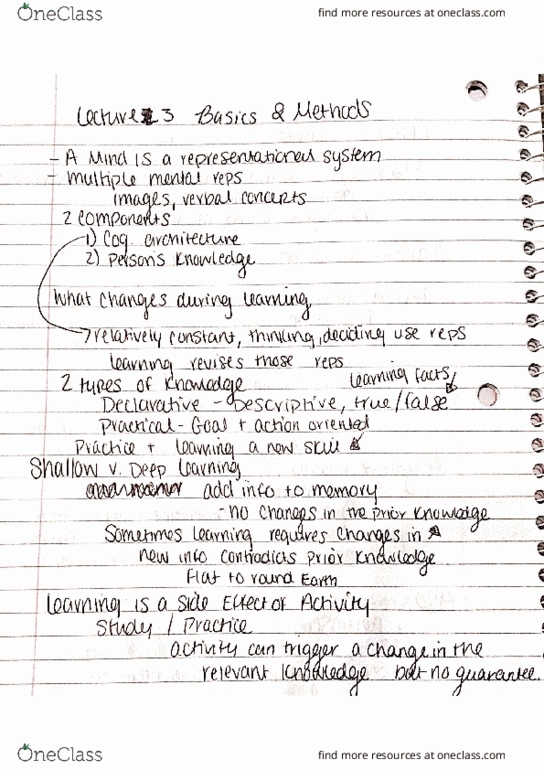 OneClass
find more resources at oneclass.com
Lecture 3 Basics & Methods
- A Mind is a representational system
- multiple mental reps
images, verbal concepts
2 components
1) Cog architecture
2) Person's Knowledge
What changes during learning
relatively constant, thinking, deciding use reps
learning revises those reps
2 types of Knowledge
learning facts
Declarative - Descriptive, true/false
Practical - Goal + action oriented
Practice + learning a new skill
Shallow v. Deep learning
add info to memory
- no changes in the prior Knowledge
Sometimes learning requires changes in
new info contradicts prior Knowledge
flat to round Earth
Learning is a Side Effect of Activity
Study / Practice
activity can trigger a change in the
relevant Knowledge but no guarantee.
OneClass
find more resources at oneclass.com